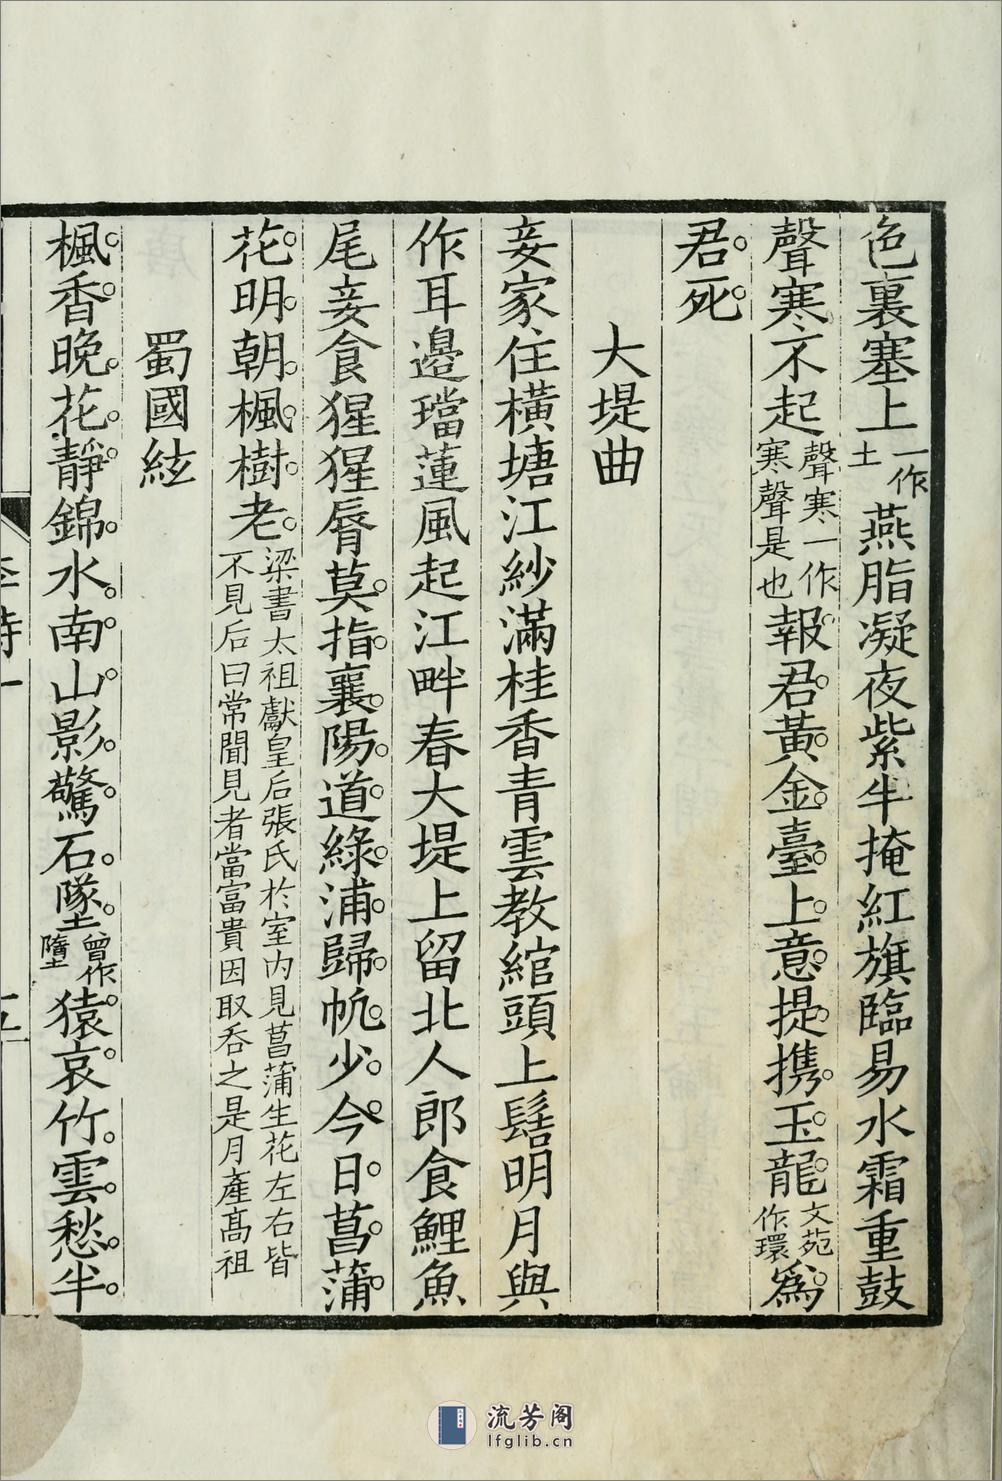 色裏塞上一作土燕脂凝夜紫半掩紅旗臨易水霜重鼓
聲寒不起聲寒一作寒聲是也報君黃金臺上意提携玉龍文苑作環爲
君死
大堤曲
妾家住橫塘江紗滿桂香青雲教綰頭上髻明月與
作耳邊璫蓮風起江畔春大堤上留北人郎食鯉魚
尾妾食猩猩脣莫指襄陽道綠浦歸帆少今日菖蒲
花明朝楓樹老梁書太祖獻皇后張氏於室內見菖蒲生花左右皆不見后曰常聞見者當富貴因取吞之是月產高祖
蜀國絃
楓香晚花靜錦水南山影驚石墜曾作墮猿哀竹雲愁半
流芳阁
lfglib.cn